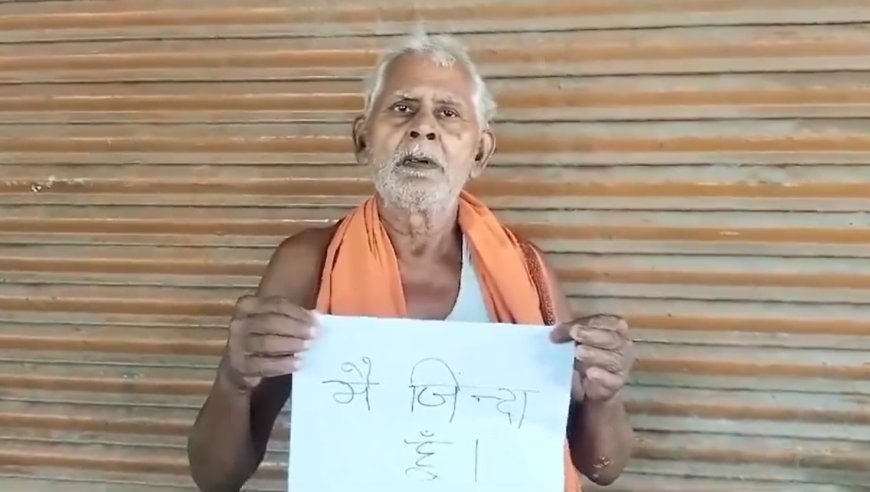 मै जिन्दा
हूँ ।